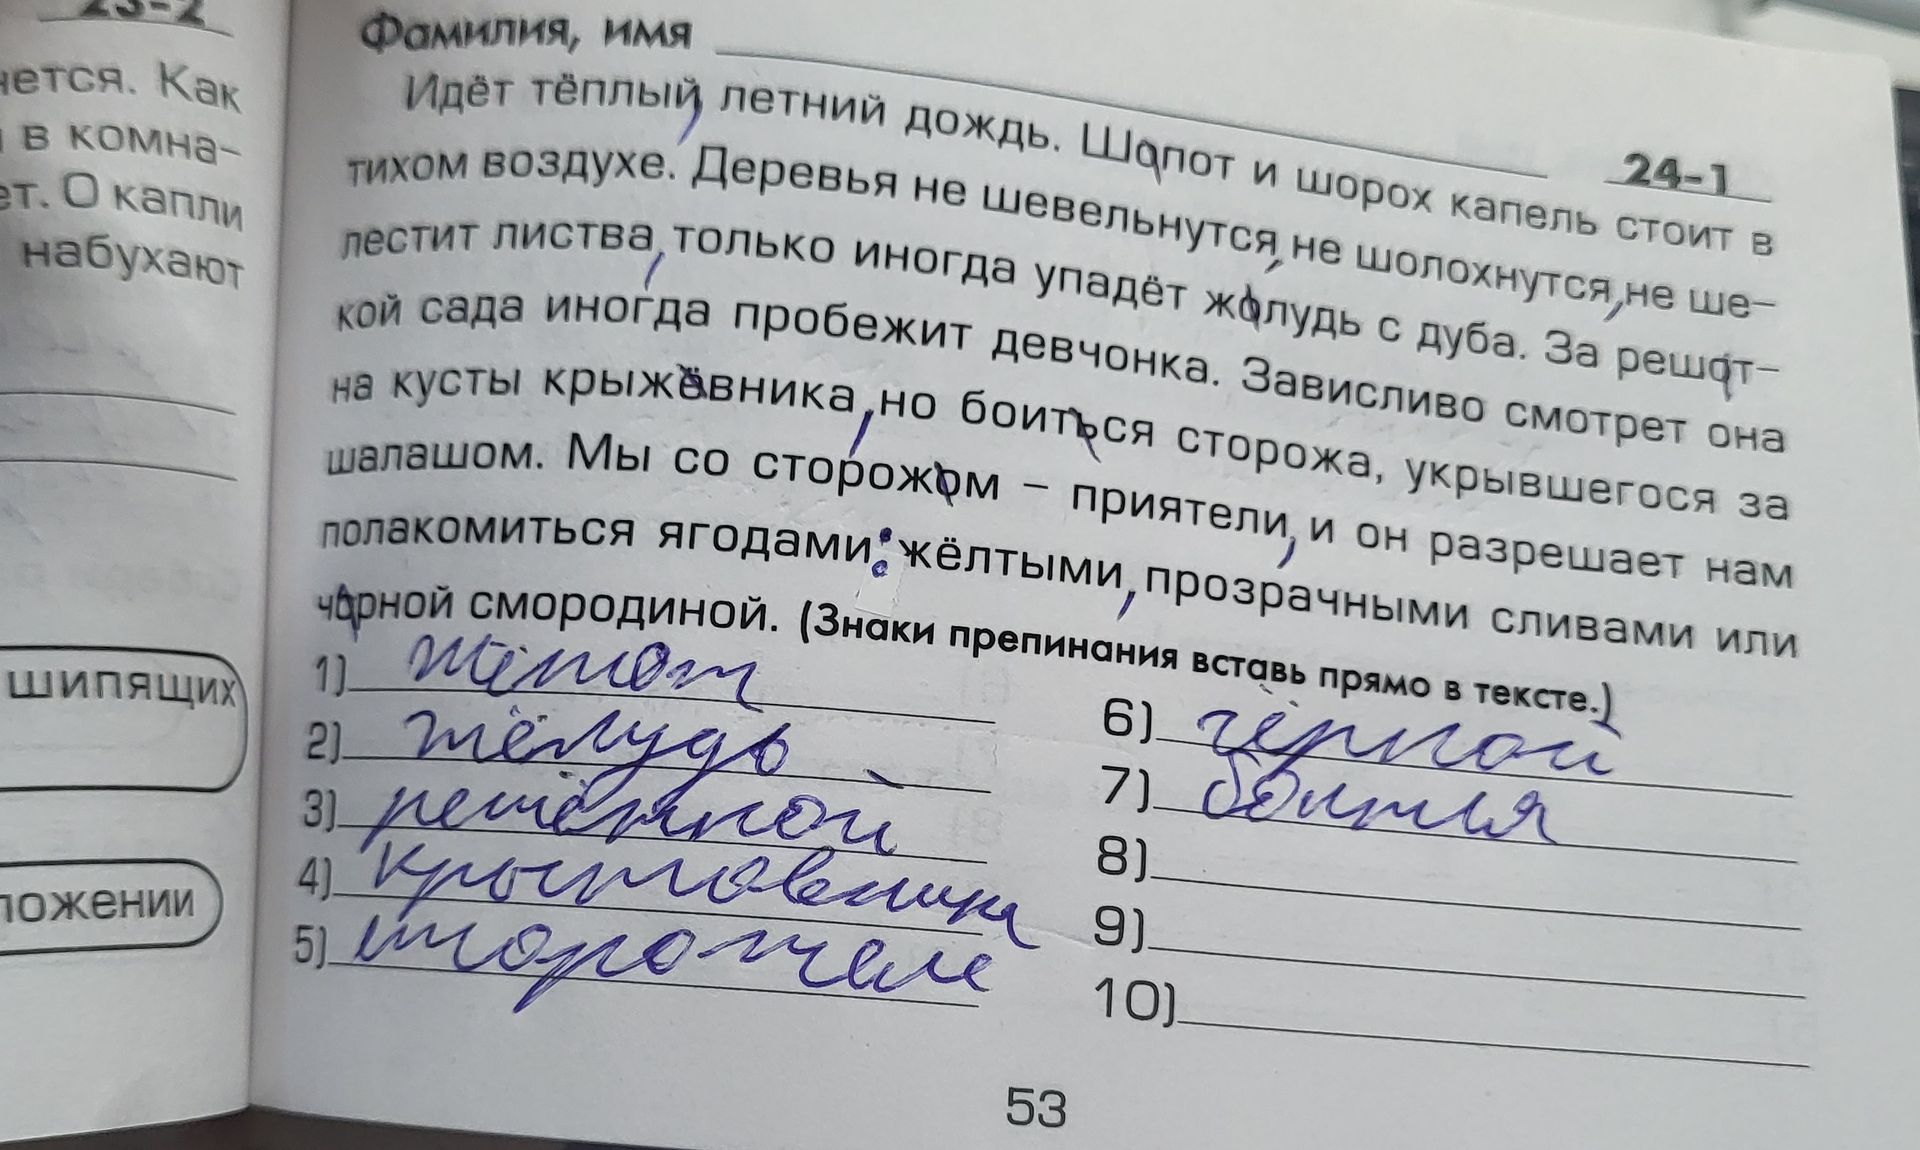 23-2
нется. Как
в комна-
ет. О капли
набухают
шипящих
ложении
Фамилия, имя
24-1
Идёт тёплый, летний дождь. Шопот и шорох капель стоит в
тихом воздухе. Деревья не шевельнутся, не шолохнутся, не ше-
лестит листва, только иногда упадёт жолудь с дуба. За решот-
кой сада иногда пробежит девчонка. Зависливо смотрет она
на кусты крыжёвника, но боиться сторожа, укрывшегося за
шалашом. Мы со сторожом – приятели, и он разрешает нам
полакомиться ягодами: жёлтыми, прозрачными сливами или
чорной смородиной. (Знаки препинания вставь прямо в тексте.)
1) шёпот
2) жёлудь
3) решёткой
4) крыжовника
5) сторожем
6) чёрной
7) боится
8)
9)
10)
53